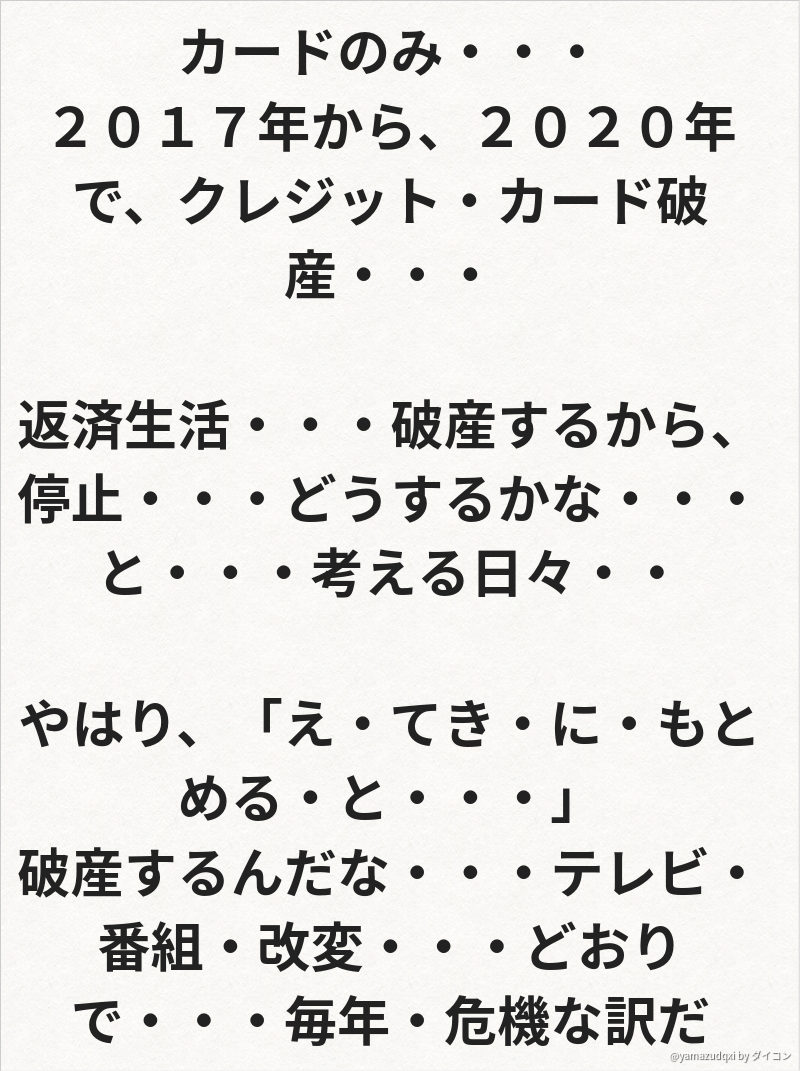 カードのみ・・・
２０１７年から、２０２０年
で、クレジット・カード破
産・・・
返済生活・・・破産するから、
停止・・・どうするかな・・・
と・・・考える日々・・
やはり、「え・てき・に・もと
める・と・・・」
破産するんだな・・・テレビ・
番組・改変・・・どおり
で・・・毎年・危機な訳だ
@yamazudqxi by ダイコン